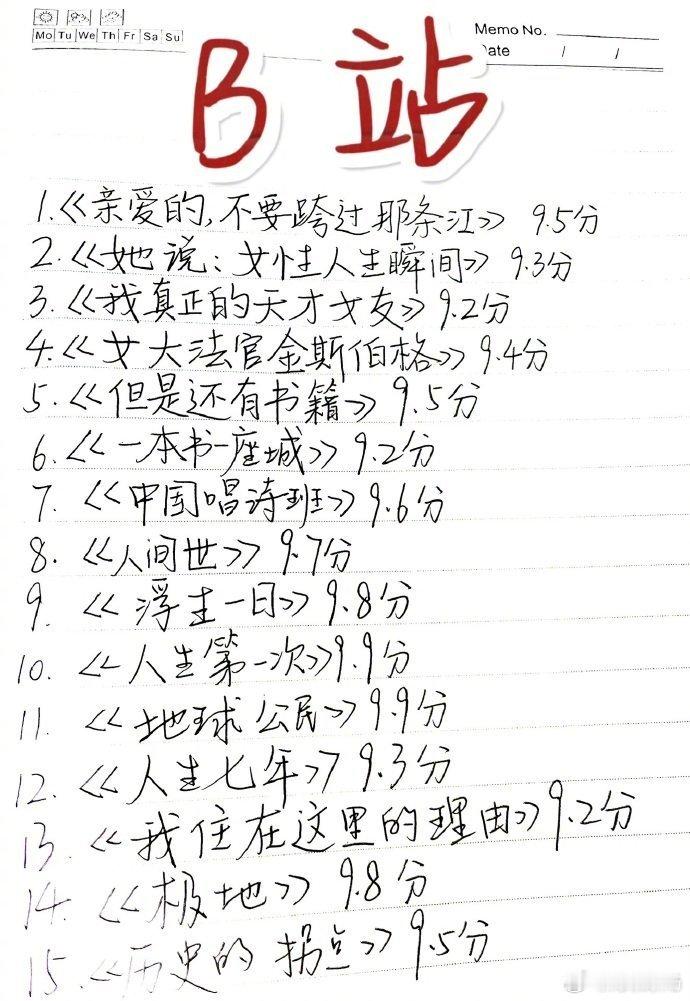 Mo Tu We Th Fr Sa Su
Memo No.
Date / /
B站
1.《亲爱的,不要跨过那条江》 9.5分
2.《她说:女性人生瞬间》 9.3分
3.《我真正的天才女友》 9.2分
4.《女大法官金斯伯格》 9.4分
5.《但是还有书籍》 9.5分
6.《一本书一座城》 9.2分
7.《中国唱诗班》 9.6分
8.《人间世》 9.7分
9.《浮生一日》 9.8分
10.《人生第一次》 9.9分
11.《地球公民》 9.9分
12.《人生七年》 9.3分
13.《我住在这里的理由》 9.2分
14.《极地》 9.8分
15.《历史的拐点》 9.5分